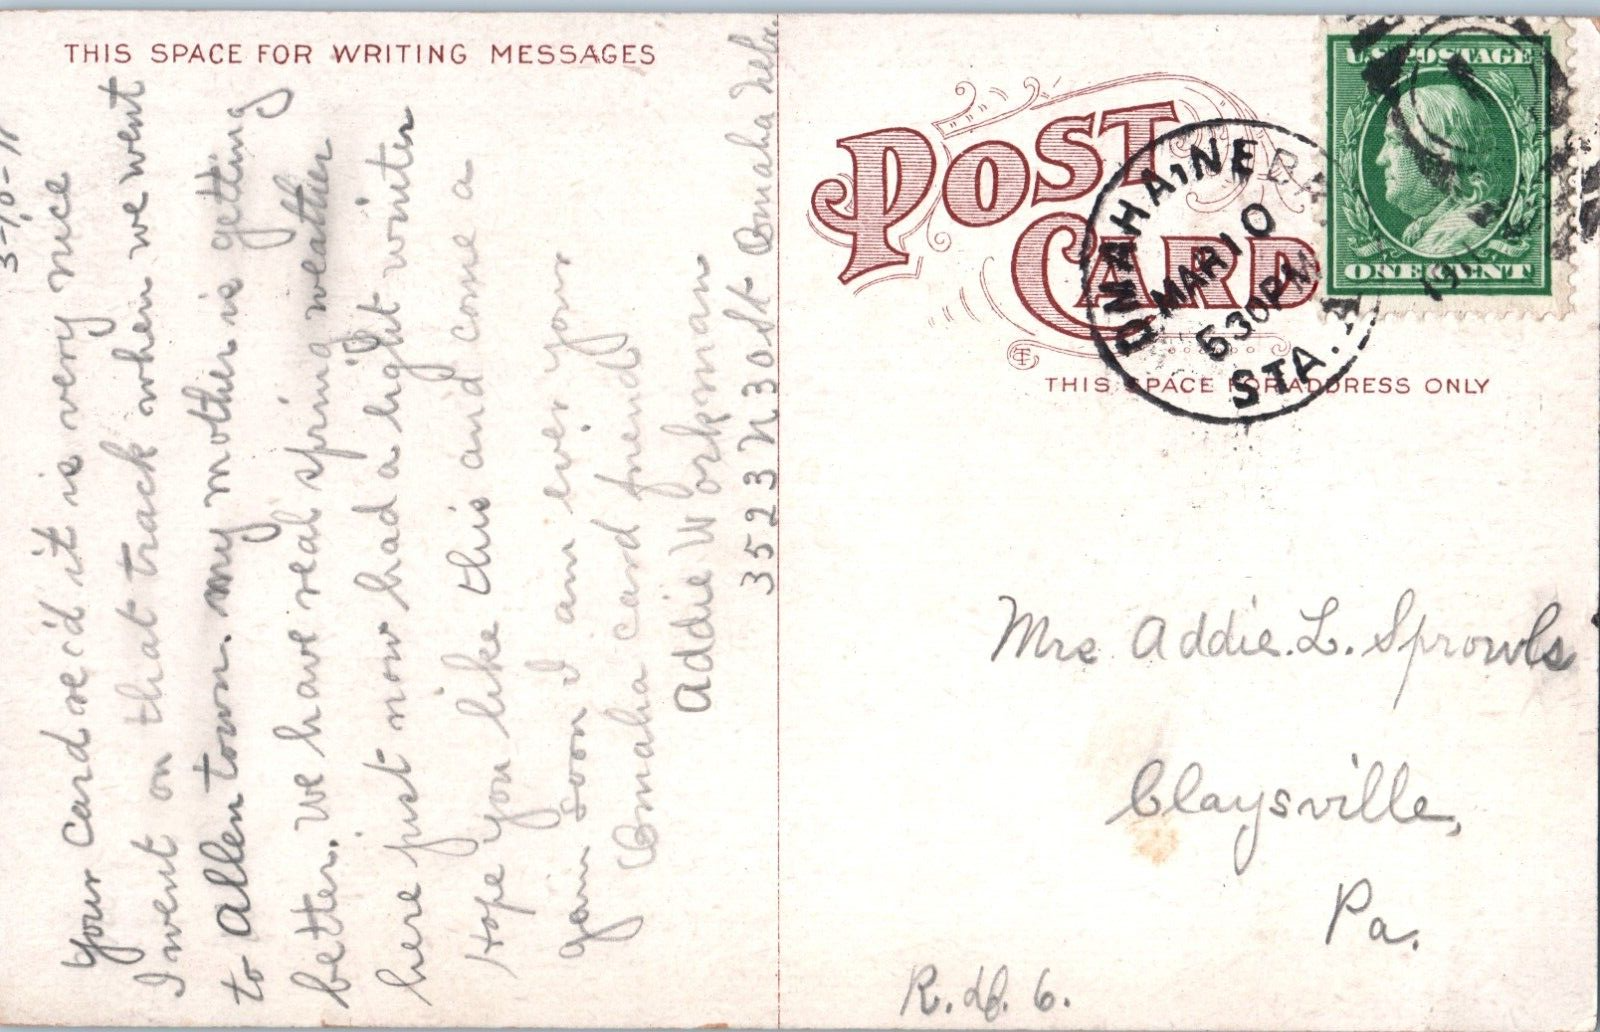 THIS SPACE FOR WRITING MESSAGES
3-10-11
Your card rec'd it is very nice
I went on that track when we went
to Allentown. my mother is getting
better. We have real spring weather
here just now had a light winter
Hope you like this and come a
gain soon I am ever your
Omaha card friend
Addie Workman
3523 N 30 St Omaha Nebr.
POST
CARD
U.S. POSTAGE
ONE CENT
OMAHA, NEBR
MAR 10
630 PM
1911
STA. A
THIS SPACE FOR ADDRESS ONLY
Mrs Addie. L. Sprowls
Claysville,
Pa.
R. d. 6.